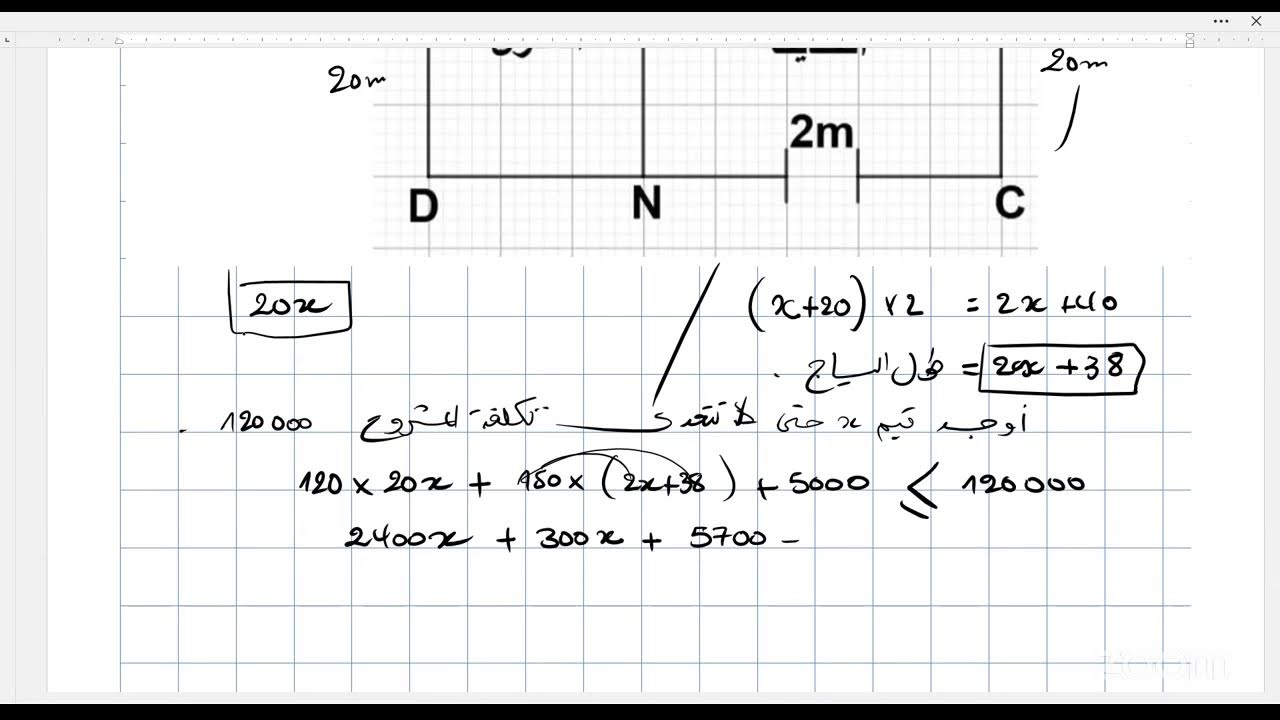 20m
20m
2m
D N C
20x
(x+20) × 2 = 2x +40
طول السياج = 2x + 38
أوجد قيم x حتى لا تتعدى تكلفة المشروع 120000 .
120 × 20x + 150 × (2x+38) + 5000 ≤ 120000
2400x + 300x + 5700 -
zoom